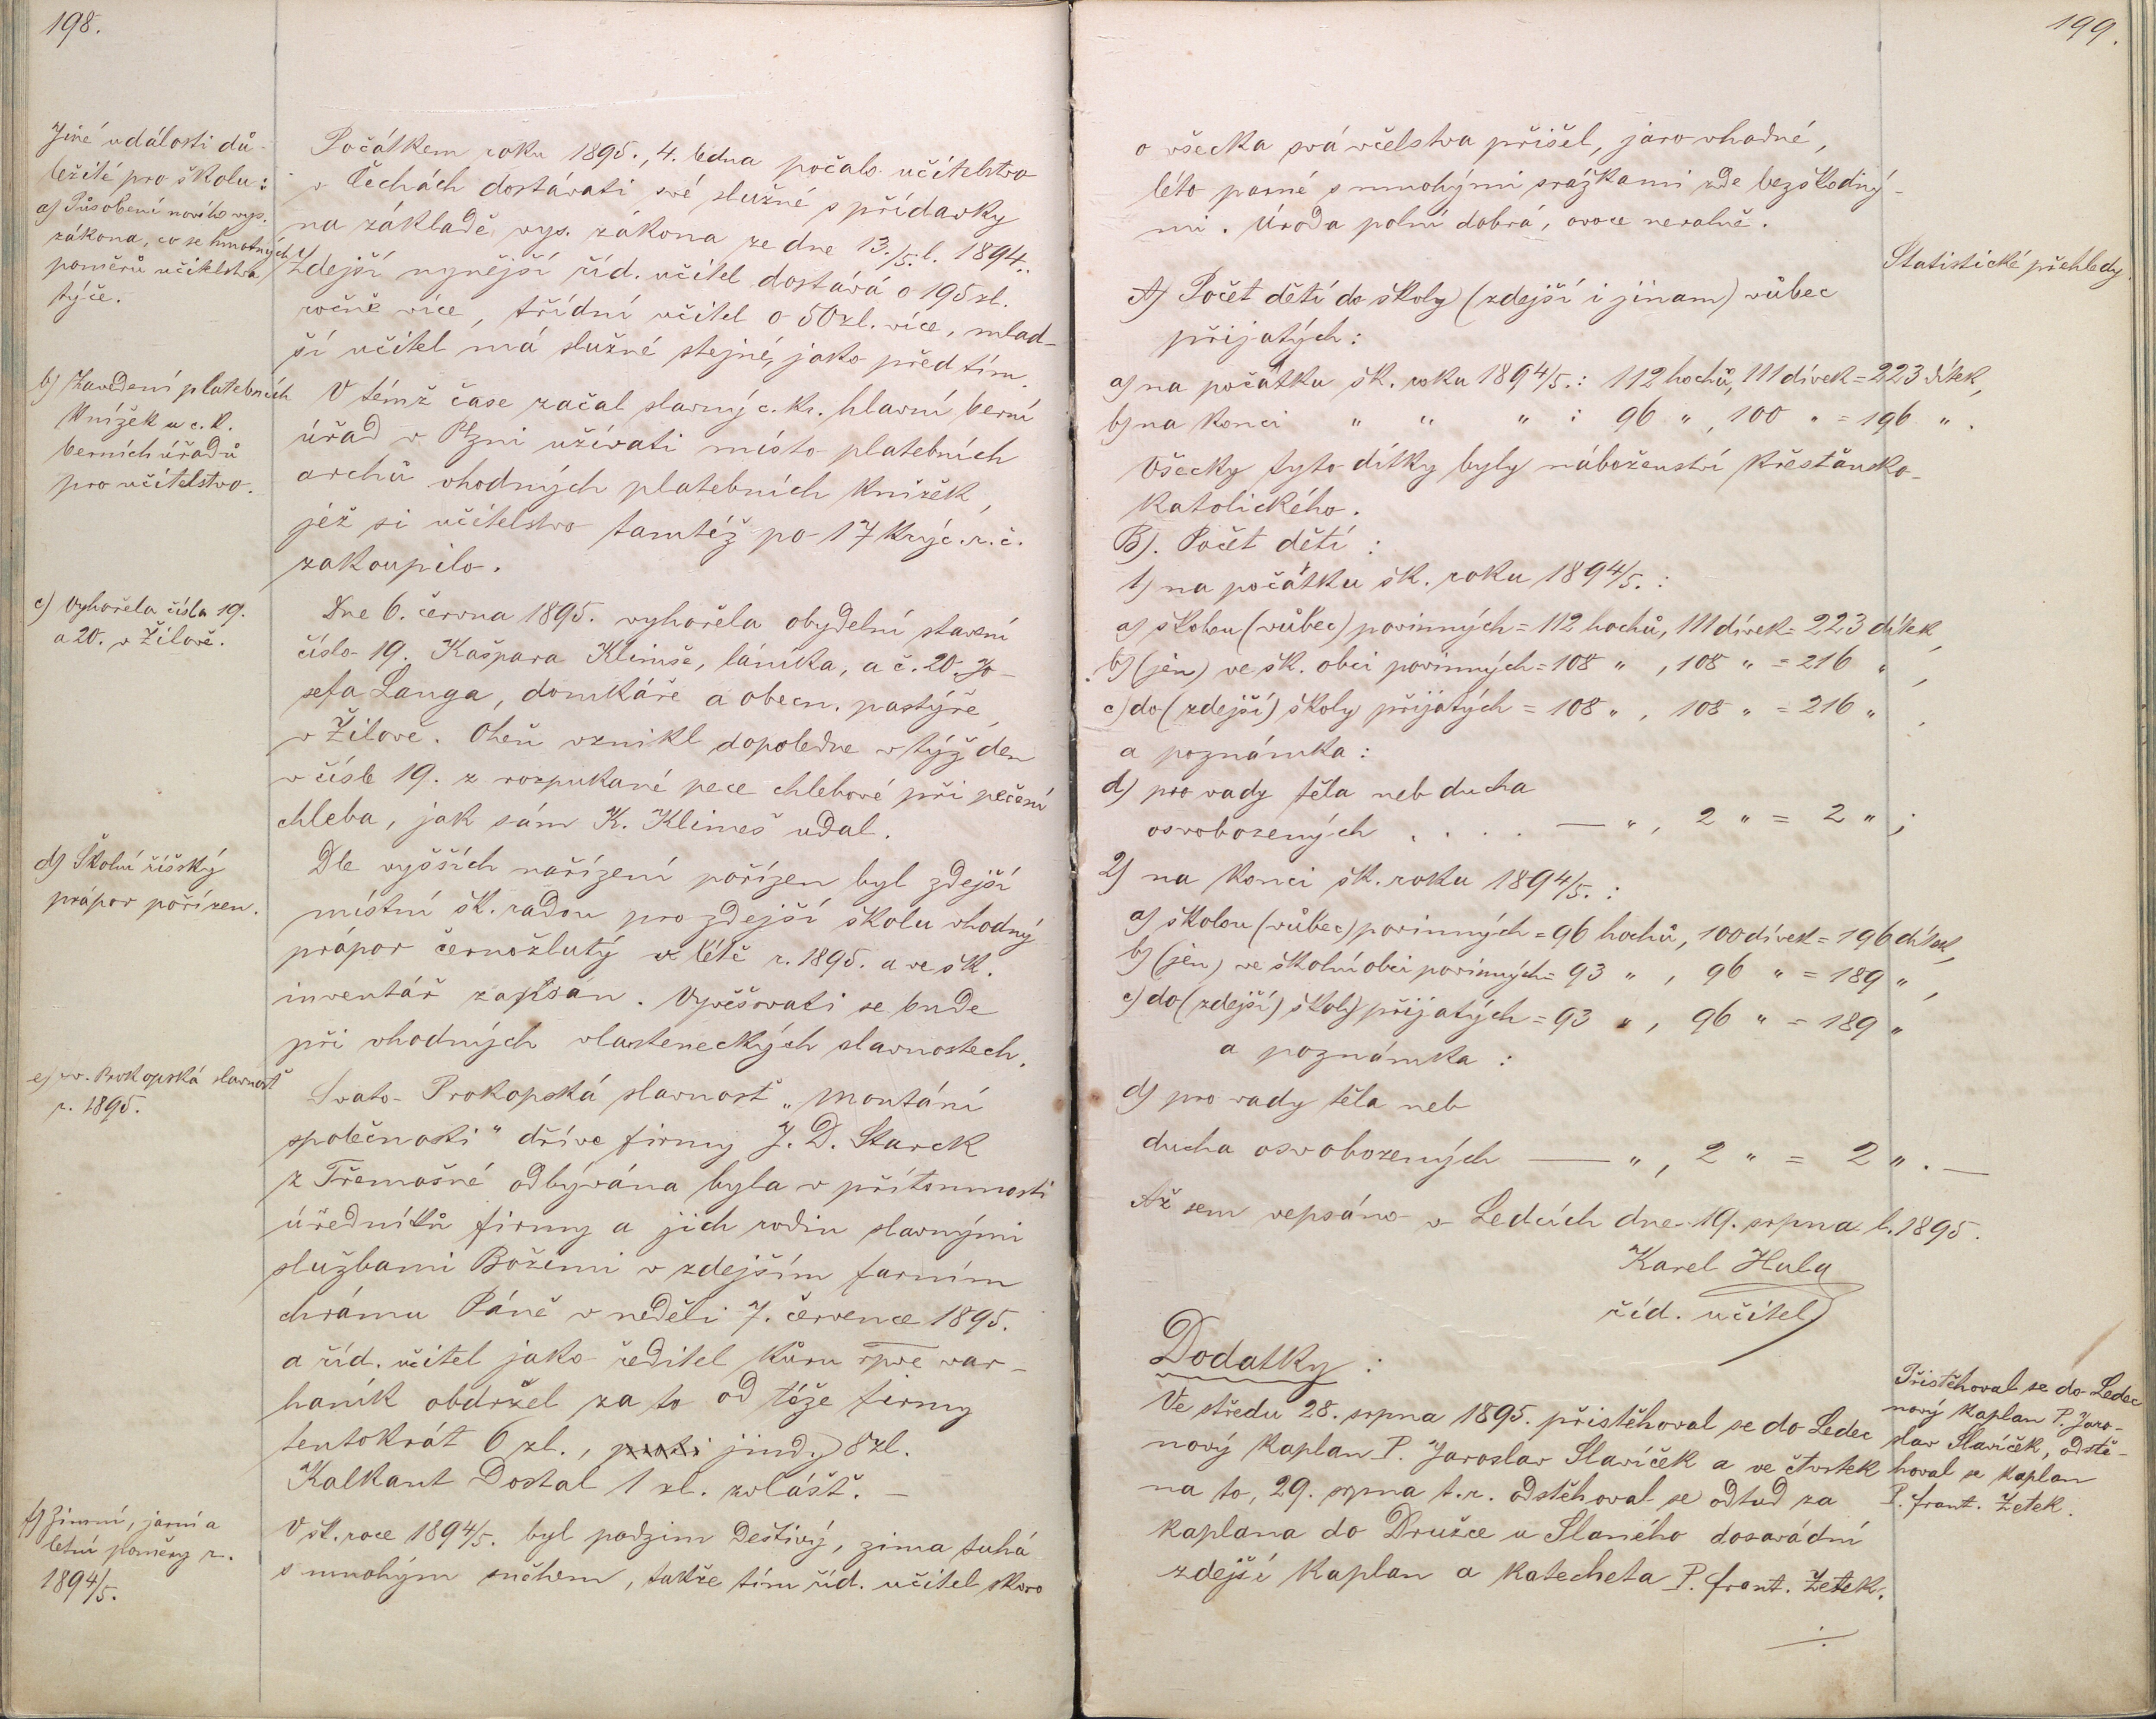 198.
Jiné události dů-
ležité pro školu:
a) Působení nového vys.
zákona, co se hmotných
poměrů učitelstva
týče.
Počátkem roku 1895., 4. ledna počalo učitelstvo
v Čechách dostávati své služné s přídavky
na základě vys. zákona ze dne 13./5. l. 1894..
Zdejší nynější říd. učitel dostává o 195 zl.
ročně více, třídní učitel o 50 zl. více, mlad-
ší učitel má služné stejné, jako před tím.
b) Zavedení platebních
knížek u c. k.
berních úřadů
pro učitelstvo.
V témž čase začal slavný c. k. hlavní berní
úřad v Plzni užívati místo platebních
archů vhodných platebních knížek,
jež si učitelstvo tamtéž po 17 kr. č. r. č.
zakoupilo.
c) Vyhořela čísla 19.
a 20. v Žilově.
Dne 6. června 1895. vyhořela obydelní stavení
číslo 19. Kašpara Klimše, láníka, a č. 20. Jo-
sefa Langa, domkáře a obecn. pastýře,
v Žilově. Oheň vznikl dopoledne v týž den
v čísle 19. z rozpukané pece chlebové při pečení
chleba, jak sám K. Klimeš udal.
d) Školní říšský
prápor pořízen.
Dle vyšších nařízení pořízen byl zdejší
místní šk. radou pro zdejší školu vhodný
prápor černožlutý v létě r. 1895. a ve šk.
inventář zapsán. Vyvěšovati se bude
při vhodných vlasteneckých slavnostech.
e) sv. Prokopská slavnosť
r. 1895.
Svato-Prokopská slavnosť „Montání
společnosti" dříve firmy J. D. Starck
z Třemošné odbývána byla v přítomnosti
úředníků firmy a jich rodin slavnými
službami Božími v zdejším farním
chrámu Páně v neděli 7. července 1895.
a říd. učitel jako ředitel kůru var-
haník obdržel za to od téže firmy
tentokrát 6 zl., proti jindy 8 zl.
Kalkant Dostal 1 zl. zvlášť. —
f) Zimní, jarní a
letní poměry r.
1894/5.
V šk. roce 1894/5. byl podzim deštivý, zima tuhá
s mnohým sněhem, takže tím říd. učitel skoro
199.
o všecka svá včelstva přišel, jaro vhodné,
léto parné s mnohými srážkami zde bezškodný-
mi. Úroda polní dobrá, ovoce nevalně.
Statistické přehledy.
A) Počet dětí do školy (zdejší i jinam) vůbec
přijatých:
a) na počátku šk. roku 1894/5.: 112 hochů, 111 dívek = 223 dítek,
b) na konci " " " : 96 ", 100 " = 196 ".
Všecky tyto dítky byly náboženství křesťansko-
katolického.
B). Počet dětí:
1) na počátku šk. roku 1894/5.:
a) školou (vůbec) povinných = 112 hochů, 111 dívek = 223 dítek,
b) (jen) ve šk. obci povinných = 108 ", 108 " = 216 ",
c) do (zdejší) školy přijatých = 108 ", 108 " = 216 ",
a poznámka:
d) pro vady těla neb ducha
osvobozených . . . . — ", 2 " = 2 ";
2) na konci šk. roku 1894/5.:
a) školou (vůbec) povinných = 96 hochů, 100 dívek = 196 dítek,
b) (jen) ve školní obci povinných = 93 ", 96 " = 189 ",
c) do (zdejší) školy přijatých = 93 ", 96 " = 189 "
a poznámka:
d) pro vady těla neb
ducha osvobozených — ", 2 " = 2 ". —
Až sem vepsáno v Ledcích dne 19. srpna l. 1895.
Karel Hula
říd. učitel
Dodatky:
Ve středu 28. srpna 1895. přistěhoval se do Ledec
nový kaplan P. Jaroslav Slavíček a ve čtvrtek
na to, 29. srpna t. r. odstěhoval se odtud za
kaplana do Družce u Slaného dosavádní
zdejší kaplan a katecheta P. Frant. Zetek.
Přistěhoval se do Ledec
nový kaplan P. Jaro-
slav Slavíček, odstě-
hoval se kaplan
P. Frant. Zetek.